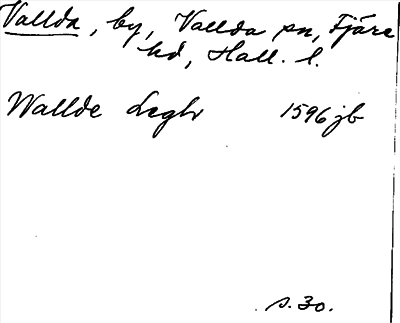 Vallda, by, Vallda sn, Fjäre
hd, Hall. l.
Wallde Leghr 1596 jb
s. 30.